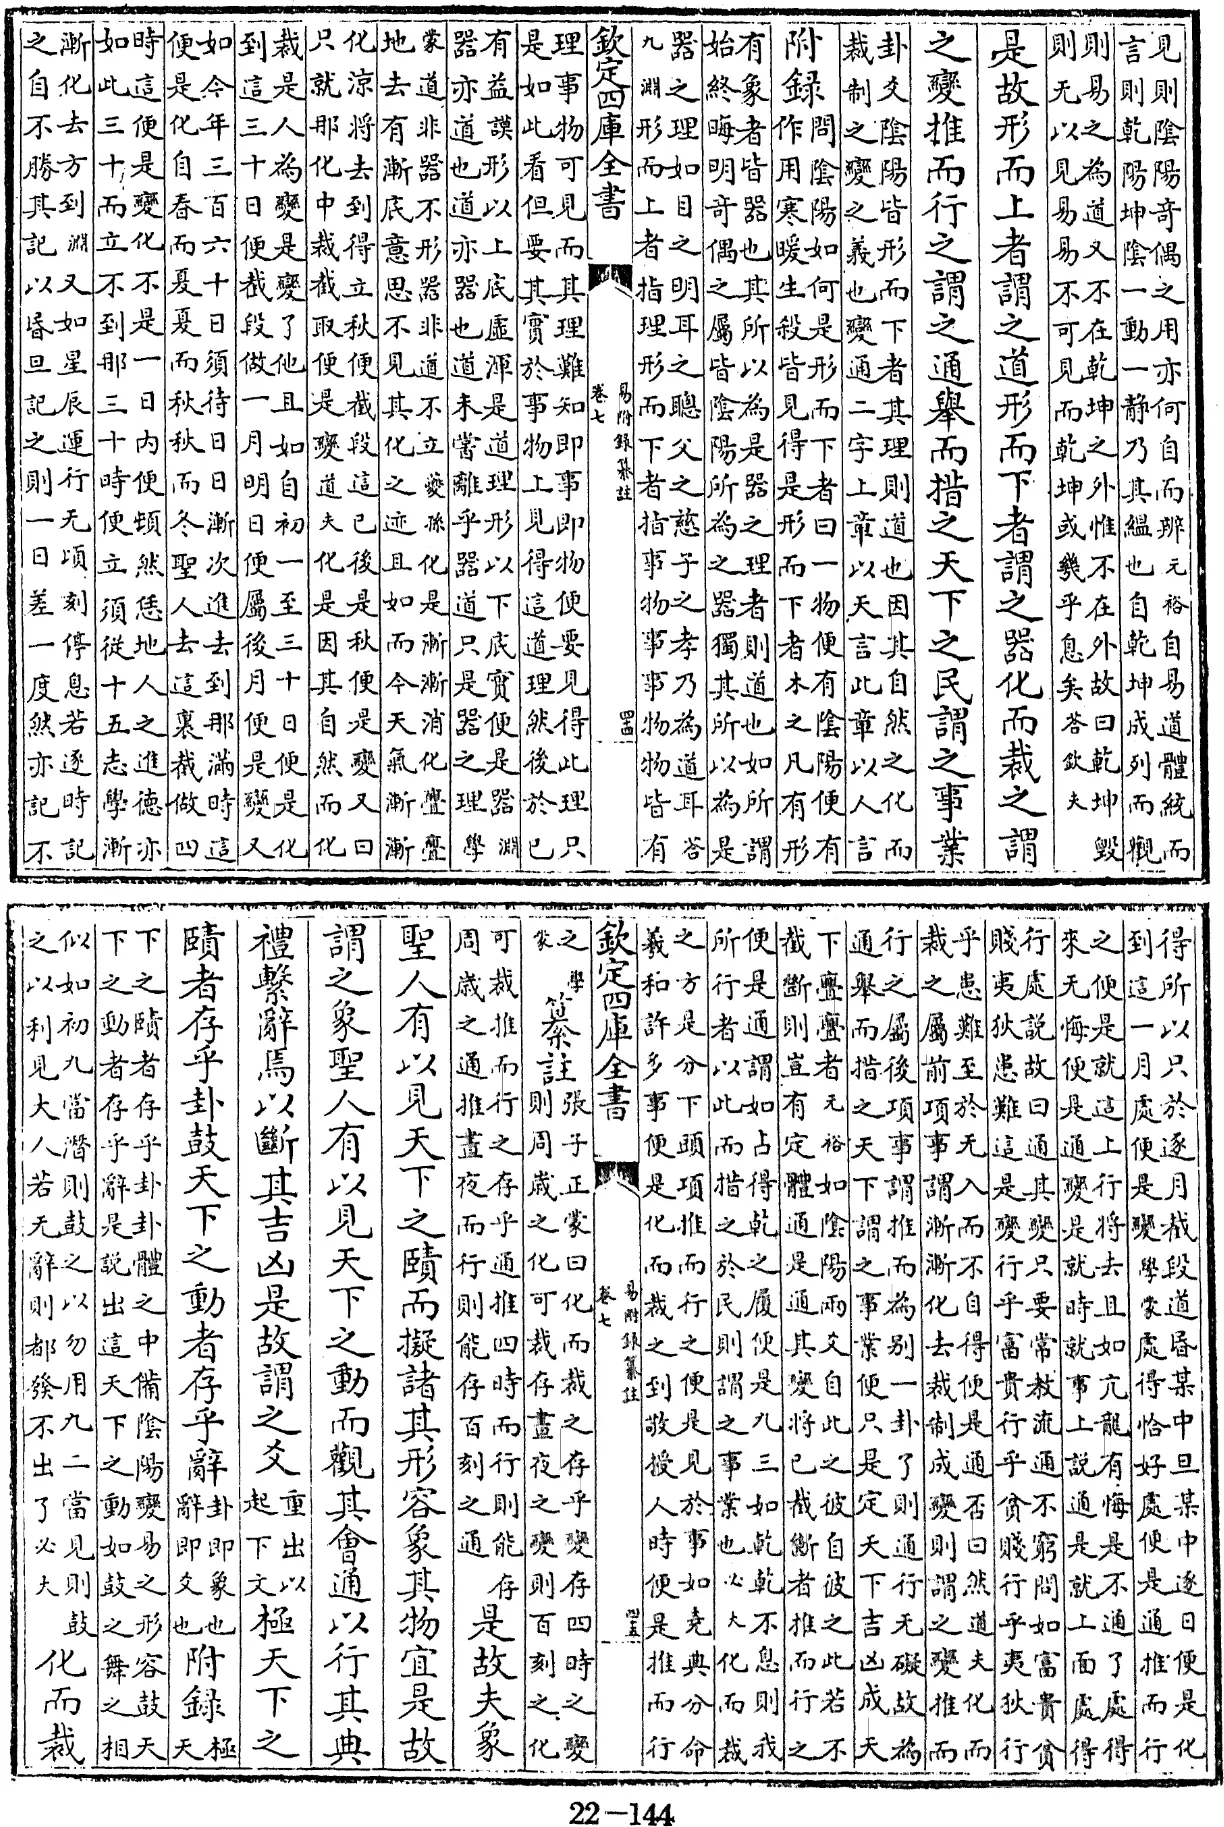 見則陰陽竒偶之用亦何自而辨元裕自易道體統而
言則乾陽坤陰一動一静乃其緼也自乾坤成列而觀
則易之為道又不在乾坤之外惟不在外故曰乾坤毁
則无以見易易不可見而乾坤或幾乎息矣荅欽夫
是故形而上者謂之道形而下者謂之器化而裁之謂
之變推而行之謂之通舉而措之天下之民謂之事業
卦爻陰陽皆形而下者其理則道也因其自然之化而
裁制之變之義也變通二字上章以天言此章以人言
附録問陰陽如何是形而下者曰一物便有陰陽便有
作用寒暖生殺皆見得是形而下者本之凡有形
有象者皆器也其所以為是器之理者則道也如所謂
始終晦明竒偶之屬皆陰陽所為之器獨其所以為是
器之理如目之明耳之聰父之慈子之孝乃為道耳荅
九淵形而上者指理形而下者指事物事事物物皆有
欽定四庫全書 易附録纂註 卷七 四四
理事物可見而其理難知即事即物便要見得此理只
是如此看但要其實於事物上見得這道理然後於已
有益謨形以上底虛渾是道理形以下底實便是器淵
器亦道也道亦器也道未嘗離乎器道只是器之理學
蒙道非器不形器非道不立䕫孫化是漸漸消化亹亹
地去有漸底意思不見其化之迹且如而今天氣漸漸
化涼將去到得立秋便截段這已後是秋便是變又曰
只就那化中裁截取便是變道夫化是因其自然而化
裁是人為變是變了他且如自初一至三十日便是化
到這三十日便截段做一月明日便屬後月便是變又
如今年三百六十日須待日日漸次進去到那滿時這
便是化自春而夏夏而秋秋而冬聖人去這裏截做四
時這便是變化不是一日内便頓然恁地人之進德亦
如此三十而立不到那三十時便立須從十五志學漸
漸化去方到淵又如星辰運行无頃刻停息若逐時記
之自不勝其記以昏旦記之則一日差一度然亦記不
得所以只於逐月截段道昏某中旦某中逐日便是化
到這一月處便是變學蒙處得恰好處便是通推而行
之便是就這上行將去且如亢龍有悔是不通了處得
來无悔便是通變是就時就事上説通是就上面處得
行處説故曰通其變只要常教流通不窮問如富貴貧
賤夷狄患難這是變行乎富貴行乎貧賤行乎夷狄行
乎患難至於无入而不自得便是通否曰然道夫化而
裁之屬前項事謂漸漸化去裁制成變則謂之變推而
行之屬後項事謂推而為别一卦了則通行无礙故為
通舉而措之天下謂之事業便只是定天下吉凶成天
下亹亹者元裕如陰陽兩爻自此之彼自彼之此若不
截斷則豈有定體通是通其變將已截斷者推而行之
便是通謂如占得乾之履便是九三如乾乾不息則我
所行者以此而措之於民則謂之事業也必大化而裁
之方是分下頭項推而行之便是見於事如堯典分命
羲和許多事便是化而裁之到敬授人時便是推而行
欽定四庫全書 易附録纂註 卷七 四五
之學蒙
纂註張子正蒙曰化而裁之存乎變存四時之變
則周歳之化可裁存晝夜之變則百刻之化
可裁推而行之存乎通推四時而行則能存
周歳之通推晝夜而行則能存百刻之通
是故夫象
聖人有以見天下之賾而擬諸其形容象其物宜是故
謂之象聖人有以見天下之動而觀其會通以行其典
禮繫辭焉以斷其吉凶是故謂之爻重出以起下文極天下之
賾者存乎卦鼓天下之動者存乎辭卦即象也辭即爻也附録極天
下之賾者存乎卦卦體之中備陰陽變易之形容鼓天
下之動者存乎辭是説出這天下之動如鼓之舞之相
似如初九當潛則鼓之以勿用九二當見則鼓
之以利見大人若无辭則都發不出了必大
化而裁
22-144